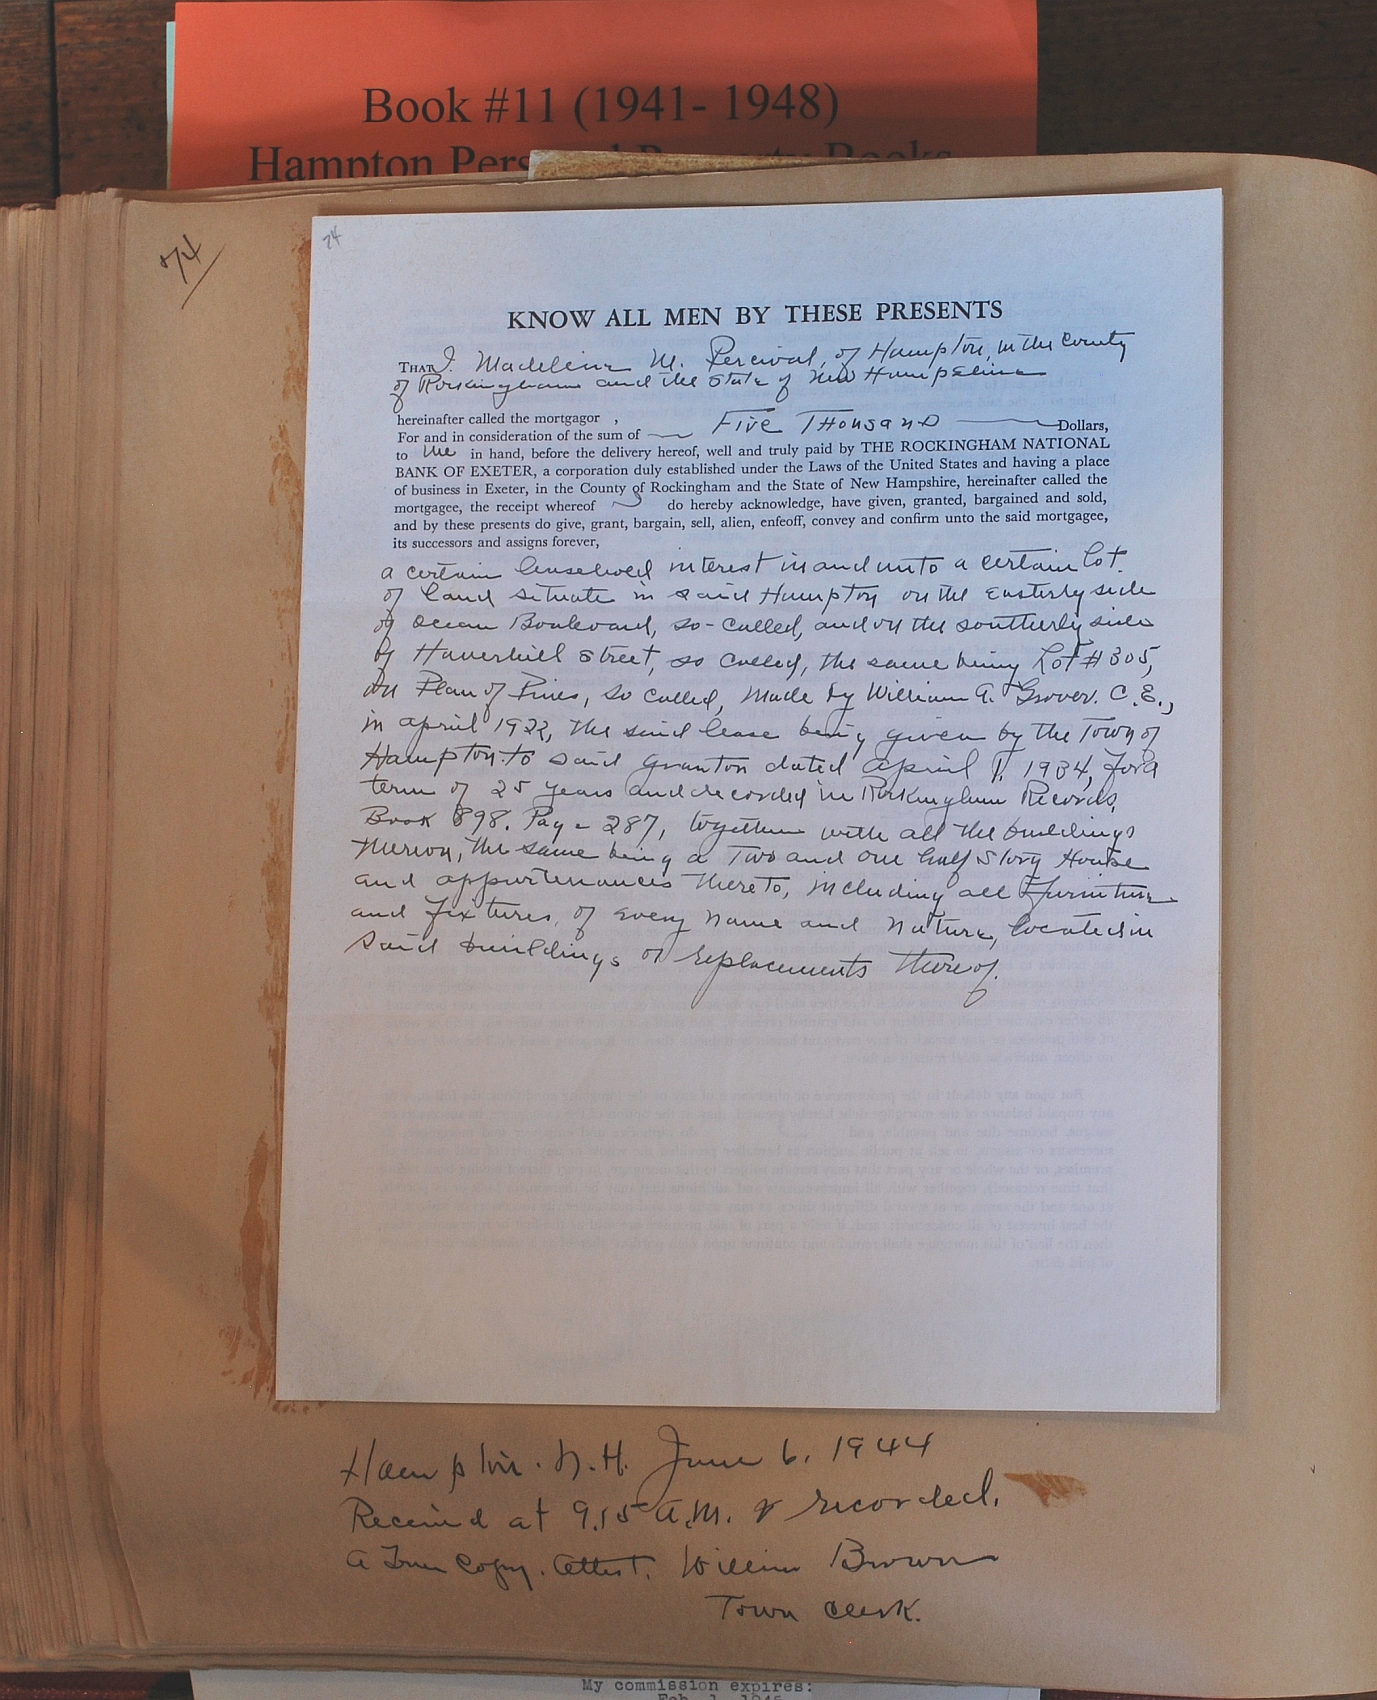 Book #11 (1941- 1948)
Hampton Personal Property Books
74
74
KNOW ALL MEN BY THESE PRESENTS
THAT I, Madeline M. Percival, of Hampton, in the County
of Rockingham and the State of New Hampshire
hereinafter called the mortgagor ,
For and in consideration of the sum of Five Thousand Dollars,
to me in hand, before the delivery hereof, well and truly paid by THE ROCKINGHAM NATIONAL
BANK OF EXETER, a corporation duly established under the Laws of the United States and having a place
of business in Exeter, in the County of Rockingham and the State of New Hampshire, hereinafter called the
mortgagee, the receipt whereof I do hereby acknowledge, have given, granted, bargained and sold,
and by these presents do give, grant, bargain, sell, alien, enfeoff, convey and confirm unto the said mortgagee,
its successors and assigns forever,
a certain leasehold interest in and unto a certain lot
of land situate in said Hampton on the easterly side
of Ocean Boulevard, so-called, and on the southerly side
of Haverhill Street, so called, the same being Lot #305,
on Plan of Pines, so called, made by William A. Grover. C.E.,
in April 1922, the said lease being given by the Town of
Hampton to said Grantor dated April 1, 1934, for a
term of 25 years and recorded in Rockingham Records,
Book 898. Page 287, together with all the buildings
thereon, the same being a Two and one half Story House
and appurtenances thereto, including all furniture
and fixtures, of every name and nature, located in
said buildings or replacements thereof.
Hampton. N.H. June 6, 1944
Received at 9.15 A.M. & recorded.
A True Copy. Attest. William Brown
Town Clerk.
My commission expires:
Feb. 1, 1945